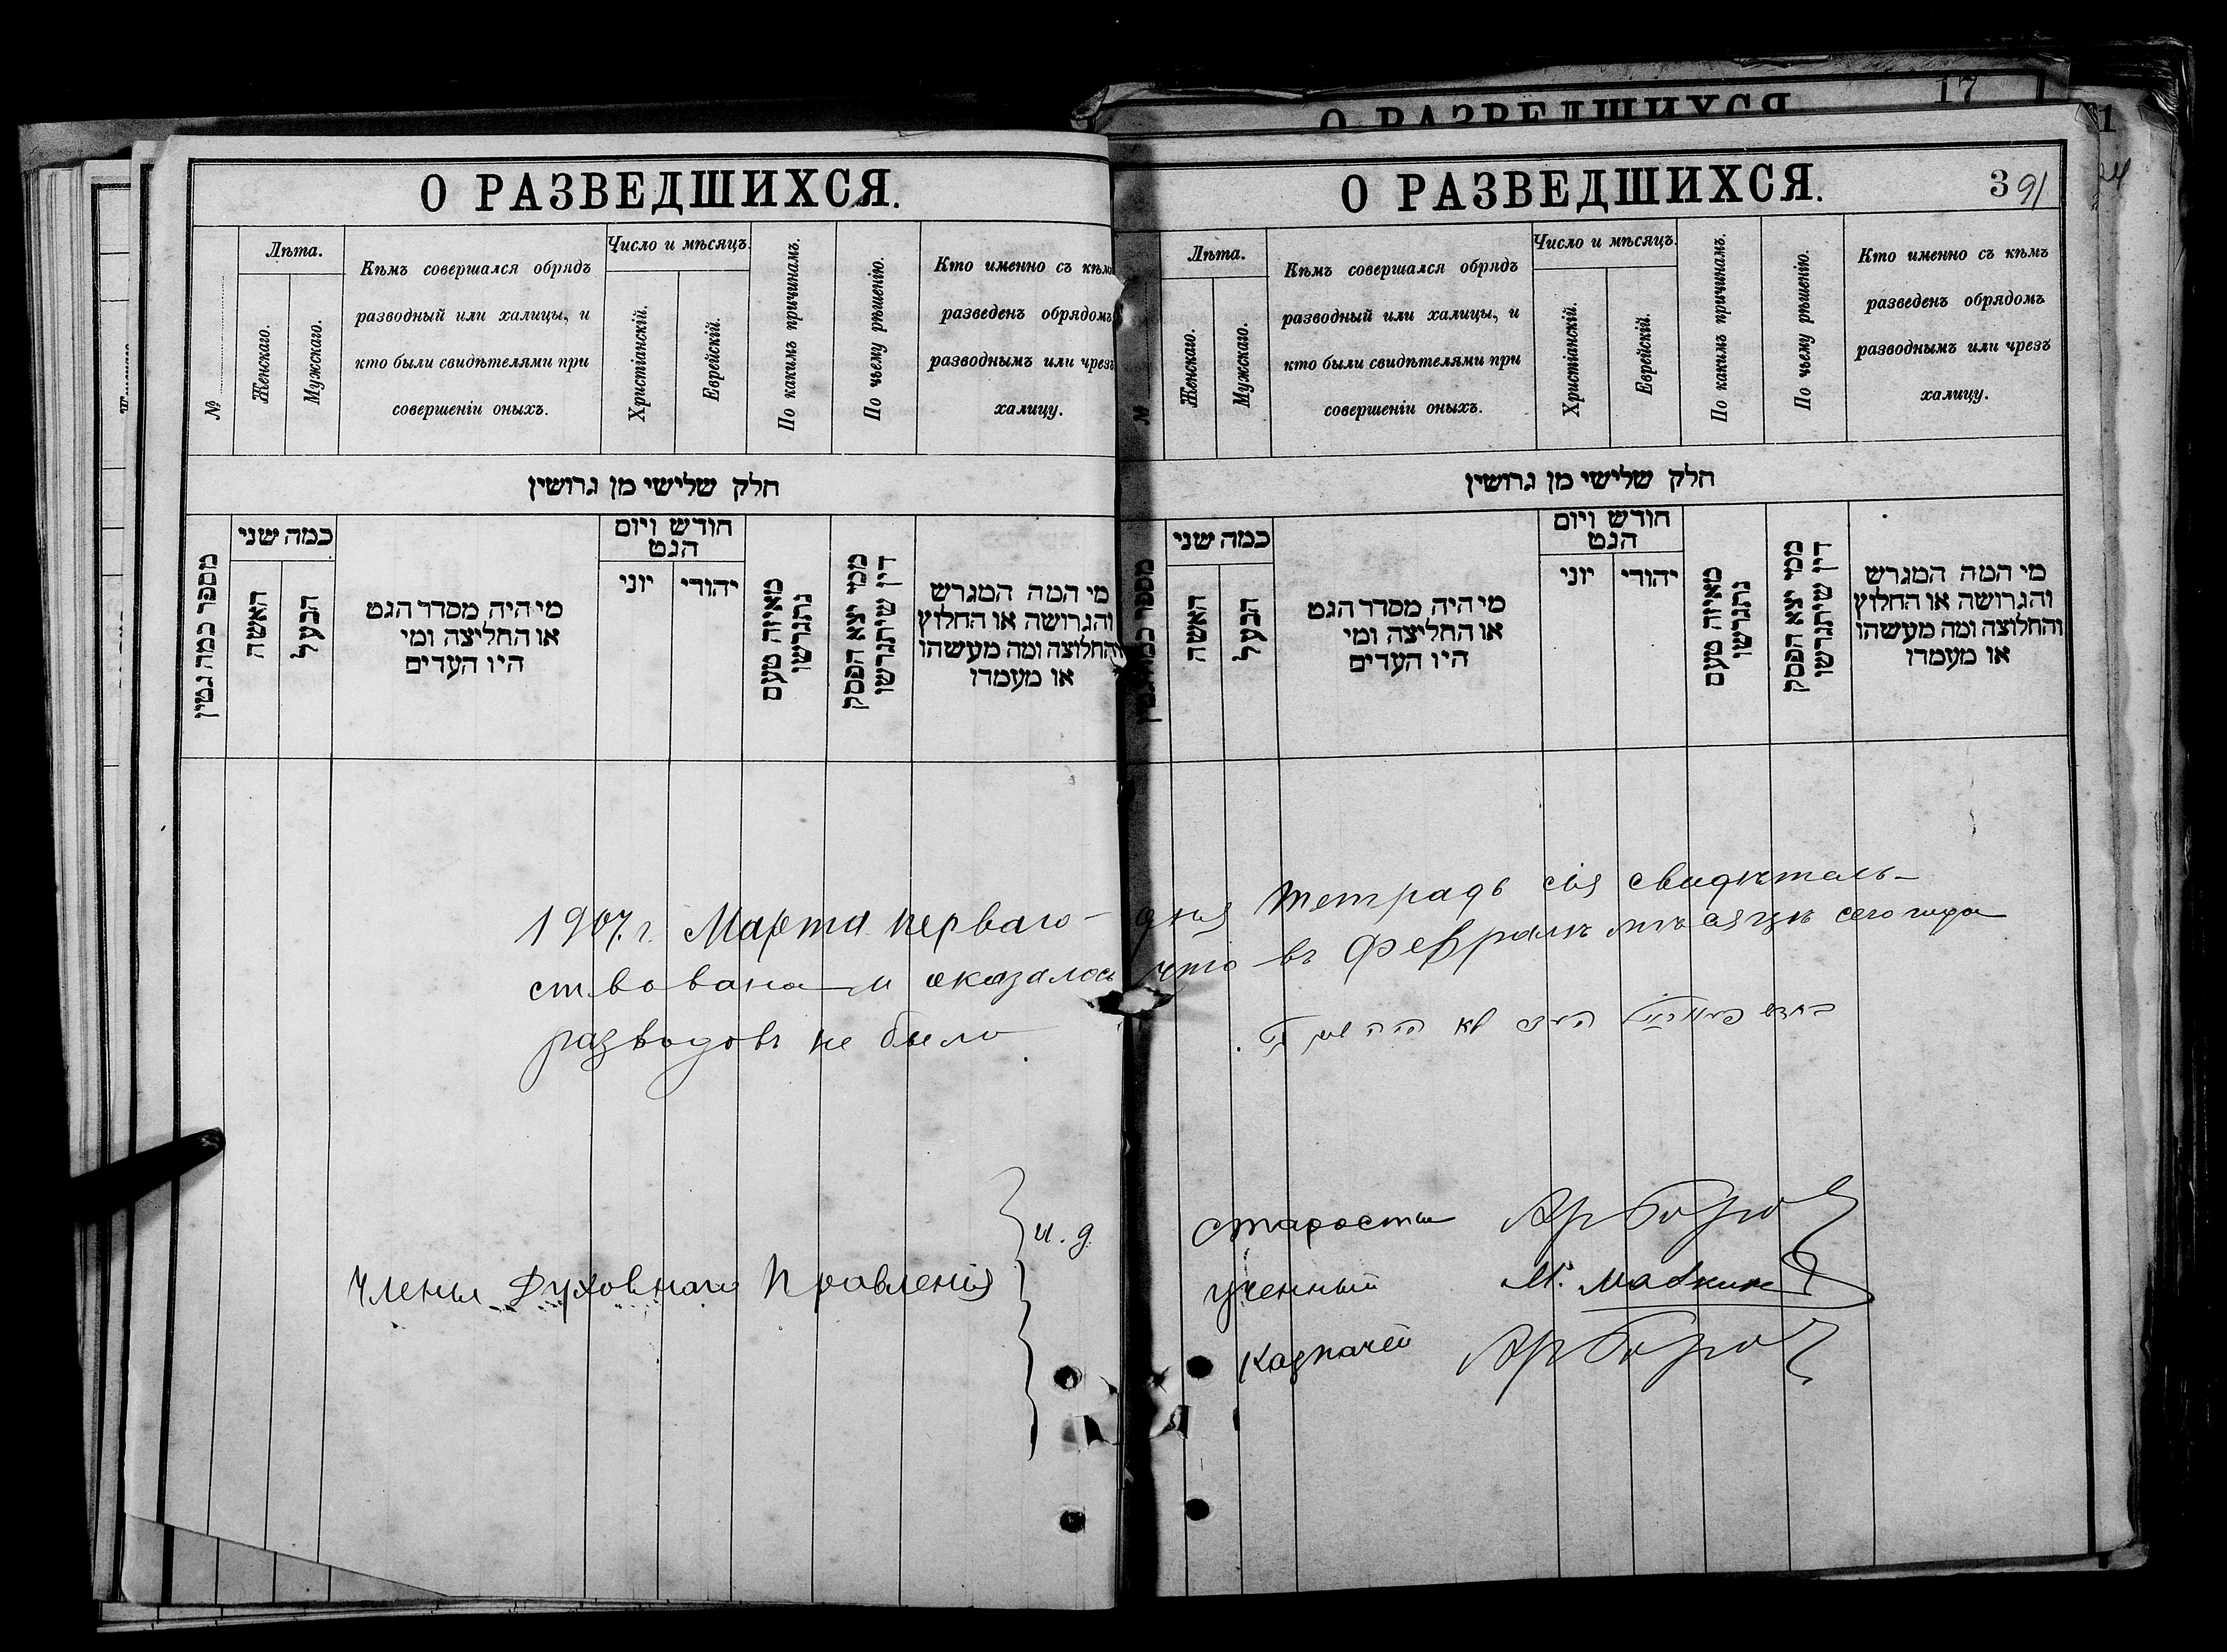 17
О РАЗВЕДШИХСЯ
О РАЗВЕДШИХСЯ.
№
Лѣта.
Женскаго.
Мужскаго.
Кѣмъ совершался обрядъ
разводный или халицы, и
кто были свидѣтелями при
совершеніи оныхъ.
Число и мѣсяцъ.
Христіанскій.
Еврейскій.
По какимъ причинамъ.
По чьему рѣшенію.
Кто именно съ кѣмъ
разведенъ обрядомъ
разводнымъ или чрезъ
халицу.
חלק שלישי מן גרושין
מספר כמה גטין
כמה שני
האשה
הבעל
מי היה מסדר הגט
או החליצה ומי
היו העדים
חודש ויום
הגט
יוני
יהודי
מאיזה טעם
נתגרשו
ממי יצא הפסק
דין שיתגרשו
מי המה המגרש
והגרושה או החלוץ
והחלוצה ומה מעשהו
או מעמדו
О РАЗВЕДШИХСЯ.
3 91
№
Лѣта.
Женскаго.
Мужскаго.
Кѣмъ совершался обрядъ
разводный или халицы, и
кто были свидѣтелями при
совершеніи оныхъ.
Число и мѣсяцъ.
Христіанскій.
Еврейскій.
По какимъ причинамъ.
По чьему рѣшенію.
Кто именно съ кѣмъ
разведенъ обрядомъ
разводнымъ или чрезъ
халицу.
חלק שלישי מן גרושין
מספר כמה גטין
כמה שני
האשה
הבעל
מי היה מסדר הגט
או החליצה ומי
היו העדים
חודש ויום
הגט
יוני
יהודי
מאיזה טעם
נתגרשו
ממי יצא הפסק
דין שיתגרשו
מי המה המגרש
והגרושה או החלוץ
והחלוצה ומה מעשהו
או מעמדו
1907 г. Марта перваго дня тетрадь сія свидѣтель-
ствована и оказалось что въ Февралѣ мѣсяцѣ сего года
разводовъ не было
Члены Духовнаго Правленія
и. д. Староста
Ученный М.
Казначей